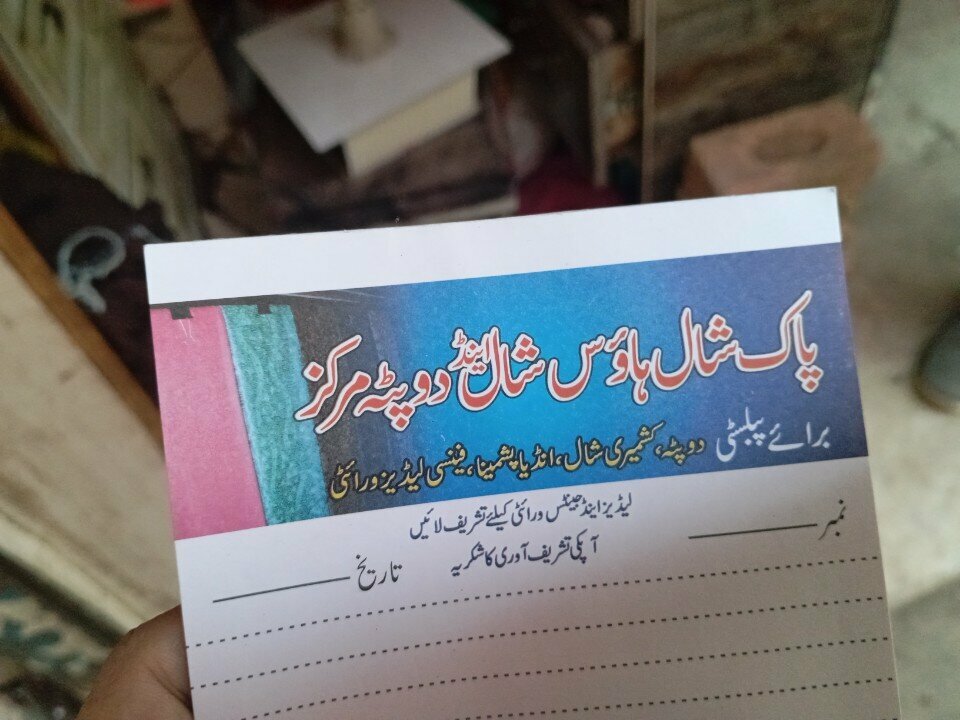 پاک شال ہاؤس شال اینڈ دوپٹہ مرکز
برائے پبلسٹی دوپٹہ، کشمیری شال، انڈیا پشمینا، فینسی لیڈیز ورائٹی
لیڈیز اینڈ جینٹس ورائٹی کیلئے تشریف لائیں
نمبر آپکی تشریف آوری کا شکریہ تاریخ